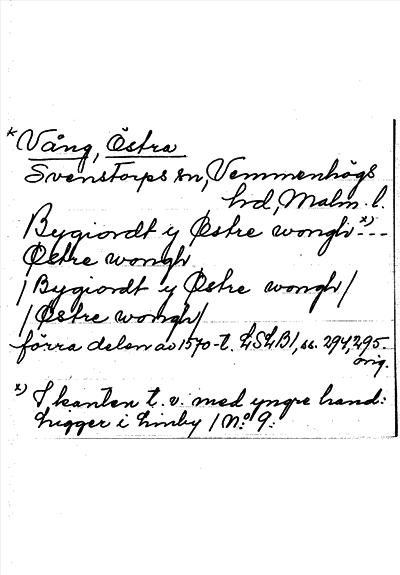 * Vång, Östra
Svenstorps sn, Vemmenhögs
hd, Malm. l.
Bygiordt y Østre wongh x) ---
Østre wongh
/Bygiordt y Østre wongh/
/Østre wongh/
förra delen av 1570-t. LSLB1, ss. 294, 295
orig.
x) I kanten t. v. med yngre hand:
Ligger i Limby / No 9: